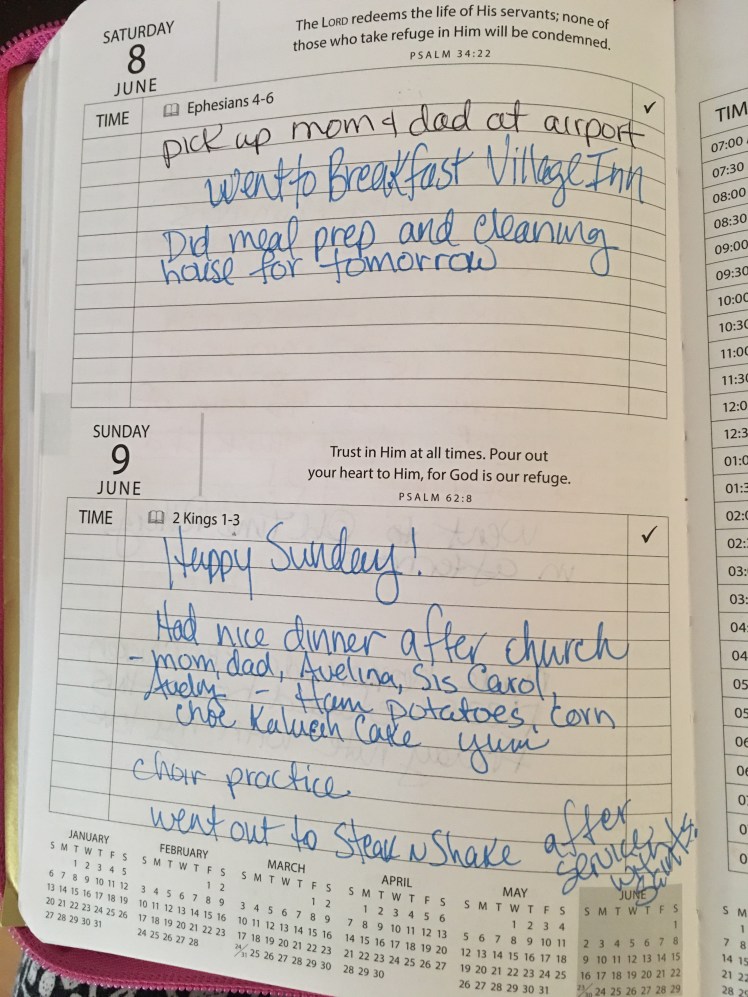 SATURDAY
8
JUNE
The LORD redeems the life of His servants; none of
those who take refuge in Him will be condemned.
PSALM 34:22
TIME
Ephesians 4-6
✓
pick up mom & dad at airport
Went to Breakfast Village Inn
Did meal prep and cleaning
house for tomorrow
SUNDAY
9
JUNE
Trust in Him at all times. Pour out
your heart to Him, for God is our refuge.
PSALM 62:8
TIME
2 Kings 1-3
✓
Happy Sunday!
Had nice dinner after church
- mom, dad, Avelina, Sis Carol,
- Ham, potatoes, corn
choc Kaluah Cake yum
choir practice
went out to Steak n Shake after
service
with
JANUARY
S M T W T F S
1 2 3 4 5
6 7 8 9 10 11 12
13 14 15 16 17 18 19
20 21 22 23 24 25 26
27 28 29 30 31
FEBRUARY
S M T W T F S
1 2
3 4 5 6 7 8 9
10 11 12 13 14 15 16
17 18 19 20 21 22 23
24 25 26 27 28
MARCH
S M T W T F S
1 2
3 4 5 6 7 8 9
10 11 12 13 14 15 16
17 18 19 20 21 22 23
24/31 25 26 27 28 29 30
APRIL
S M T W T F S
1 2 3 4 5 6
7 8 9 10 11 12 13
14 15 16 17 18 19 20
21 22 23 24 25 26 27
28 29 30
MAY
S M T W T F S
1 2 3 4
5 6 7 8 9 10 11
12 13 14 15 16 17 18
19 20 21 22 23 24 25
26 27 28 29 30 31
JUNE
S M T W T F S
1
2 3 4 5 6 7 8
9 10 11 12 13 14 15
16 17 18 19 20 21 22
23/30 24 25 26 27 28 29
TIM
07:00
07:30
08:00
08:30
09:00
09:30
10:00
10:30
11:00
11:30
12:0
12:3
01:0
01:3
02:0
02:
03:
03:
04
04
05
05
06
06
07
0
0
S M
1
7 8
14 15
21 22
28 29